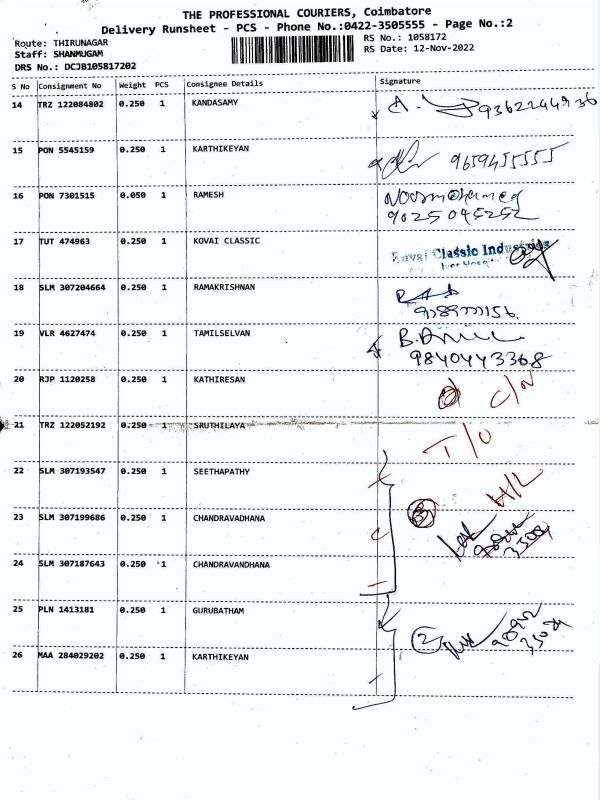 THE PROFESSIONAL COURIERS, Coimbatore
Delivery Runsheet - PCS - Phone No.:0422-3505555 - Page No.:2
Route: THIRUNAGAR
RS No.: 1058172
Staff: SHANMUGAM
RS Date: 12-Nov-2022
DRS No.: DCJB105817202
S No Consignment No Weight PCS Consignee Details Signature
14 TRZ 122084802 0.250 1 KANDASAMY
15 PON 5545159 0.250 1 KARTHIKEYAN 9659455555
16 PON 7301515 0.050 1 RAMESH Noormohamed
9025045252
17 TUT 474963 0.250 1 KOVAI CLASSIC Kovai Classic Industries
18 SLM 307204664 0.250 1 RAMAKRISHNAN
19 VLR 4627474 0.250 1 TAMILSELVAN
9840443368
20 RJP 1120258 0.250 1 KATHIRESAN C/N
21 TRZ 122052192 0.250 1 SRUTHILAYA T/O
22 SLM 307193547 0.250 1 SEETHAPATHY H/L
23 SLM 307199686 0.250 1 CHANDRAVADHANA 3
24 SLM 307187643 0.250 1 CHANDRAVANDHANA
25 PLN 1413181 0.250 1 GURUBATHAM 2
26 MAA 284029202 0.250 1 KARTHIKEYAN